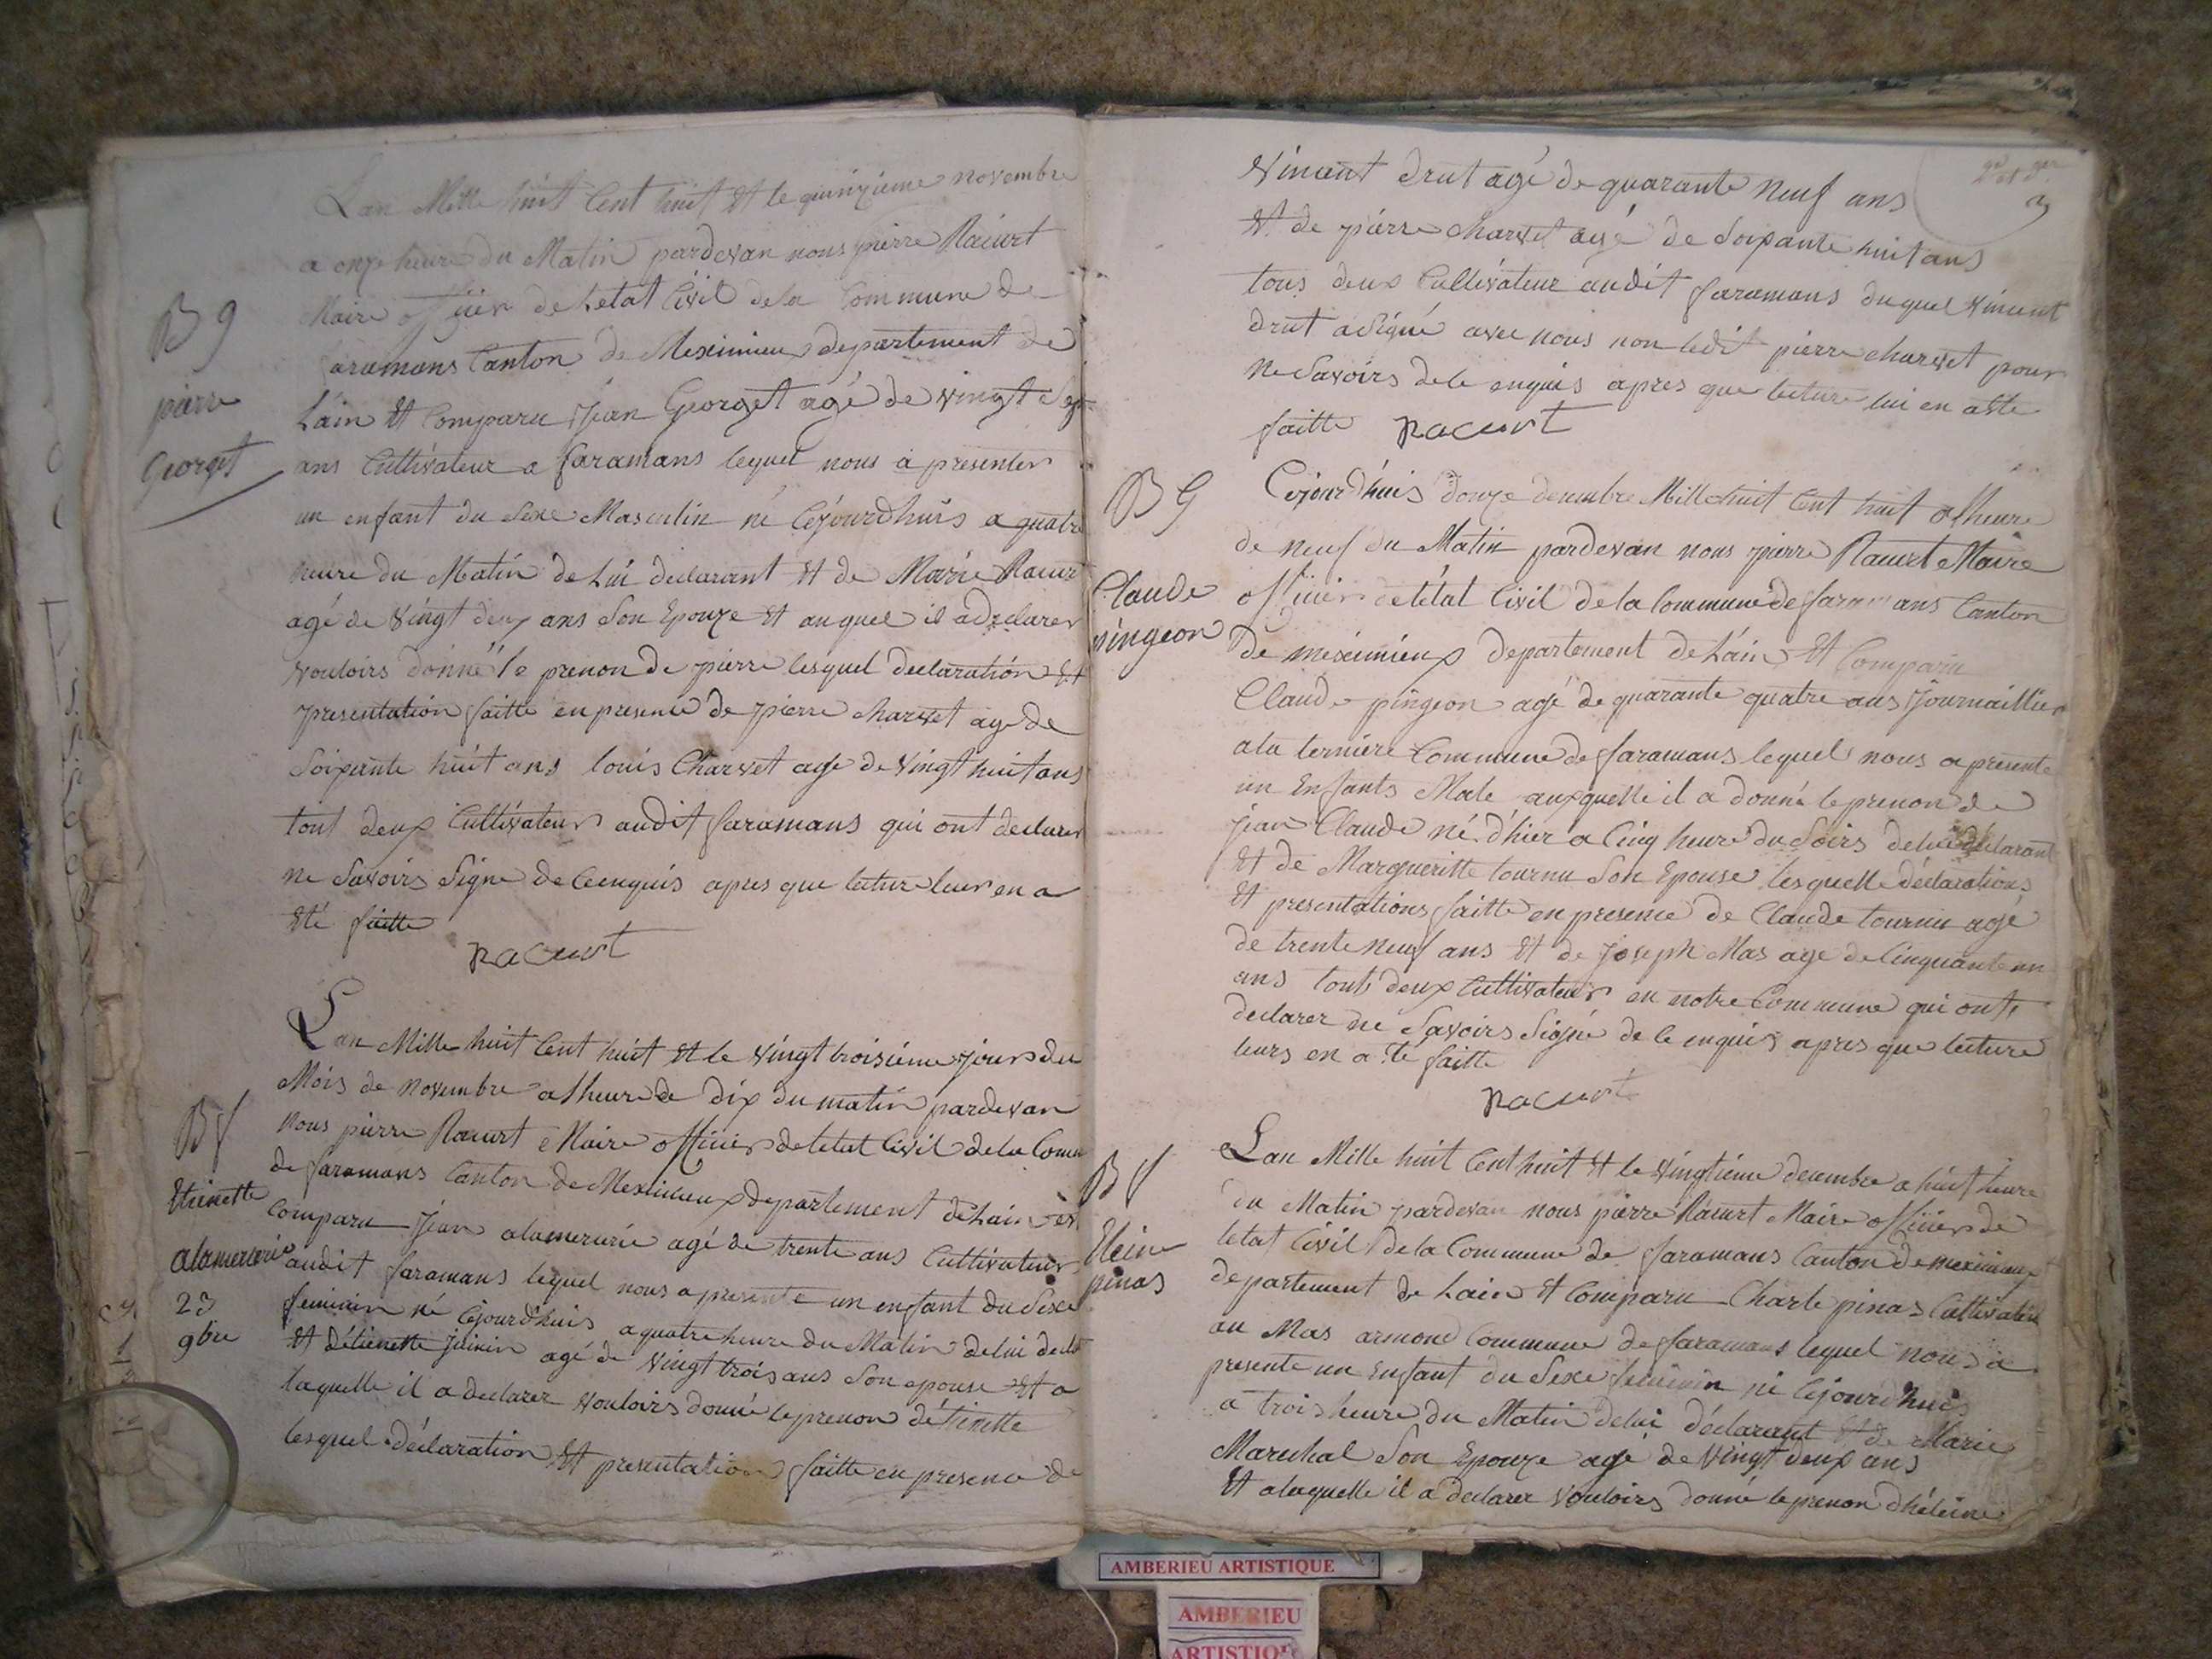 Lan Mille huit Cent huit Et le quinzieme novembre
a onze heure du Matin pardevan nous pierre Racurt
Maire officier de Letat Civil dela Commune de
faramans Canton de Meximieu departement de
Lain Et Comparu Jean Georget agé de vingt Sept
ans Cultivateur a faramans lequel nous a presenter
un enfant du Sexe Masculin né Cejourdhuis a quatre
heure du Matin de Lui declarant Et de Marie Racurt
agé de vingt deux ans Son Epouze Et auquel il a declarer
vouloirs donné le prenon de pierre lesquel declaration Et
presentation faitte en presence de pierre charvet age de
Soixante huit ans louis Charvet age de vingt huit ans
tout deux Cultivateur audit faramans qui ont declarer
ne Savoirs Signe de Ceenquis apres que lecture leur en a
Eté faitte
Racurt
B g
pierre
Georget
Lan Mille huit Cent huit Et le vingt troisiéme jour du
Mois de novembre a lheure de dix du matin pardevan
Nous pierre Racurt Maire officier deletat Civil dela Comu
de faramans Canton de Meximieux departement de Lain et
Comparu Jean alamercerie agé de trente ans Cultivateur
audit faramans lequel nous a presente un enfant du Sexe
feminin né Cejourdhuis a quatre heure du Matin delui declt
Et détienette agé de vingt trois ans Son epouse Et a
laquelle il a declarer vouloirs donné le prenon détienette
lesquel déclaration Et presentation faitte en presence de
B f
Etienette
alamercerie
23
9bre
Vincent drut agé de quarante neuf ans
Et de pierre charvet agé de Soixante huit ans
tous deux Cultivateur audit faramans duquel vincent
drut a Signé avec nous non ledit pierre charvet pour
ne Savoirs dele enquis apres que lecture lui en a Ete
faitte Racurt
3
B G
Claude
pingeon
Cejourdhuis douze decembre Mille huit Cent huit a lheure
de neuf du Matin pardevan nous pierre Racurt Maire
officier de létat Civil dela Commune de faramans Canton
de meximieux departement de Lain Et Comparu
Claude pingeon agé de quarante quatre ans Journaillier
ala terniere Commune de faramans lequel nous a presente
un Enfants Male auxquelle il a donné le prenon de
jean Claude né d'hier a Cinq heure du Soirs delui déclarant
Et de Margueritte tournu Son Epouse lesquelle déclarations
Et presentations faitte en presence de Claude tournu agé
de trente neuf ans Et de joseph Mas age de Cinquante un
ans touts deux Cultivateur en notre Commune qui onts
declarer né Savoirs Signé de Ce enquis apres que lecture
leurs en a été faitte
Racurt
B f
Eleine
pinas
Lan Mille huit Cent huit Et le vingtiéme decembre a huit heure
du Matin pardevan nous pierre Racurt Maire officier de
letat Civil dela Commune de faramans Canton de meximieux
departement de Lain Et Comparu Charle pinas Cultivateur
au Mas armond Commune de faramans lequel nous a
presente un Enfant du Sexe feminin né Cejourdhuis
a trois heure du Matin delui déclarant Et de Marie
Marechal Son Epouze agé de vingt deux ans
Et a laquelle il a declarer vouloirs donné le prenon dhéleine
AMBERIEU ARTISTIQUE
AMBERIEU
ARTISTIQUE